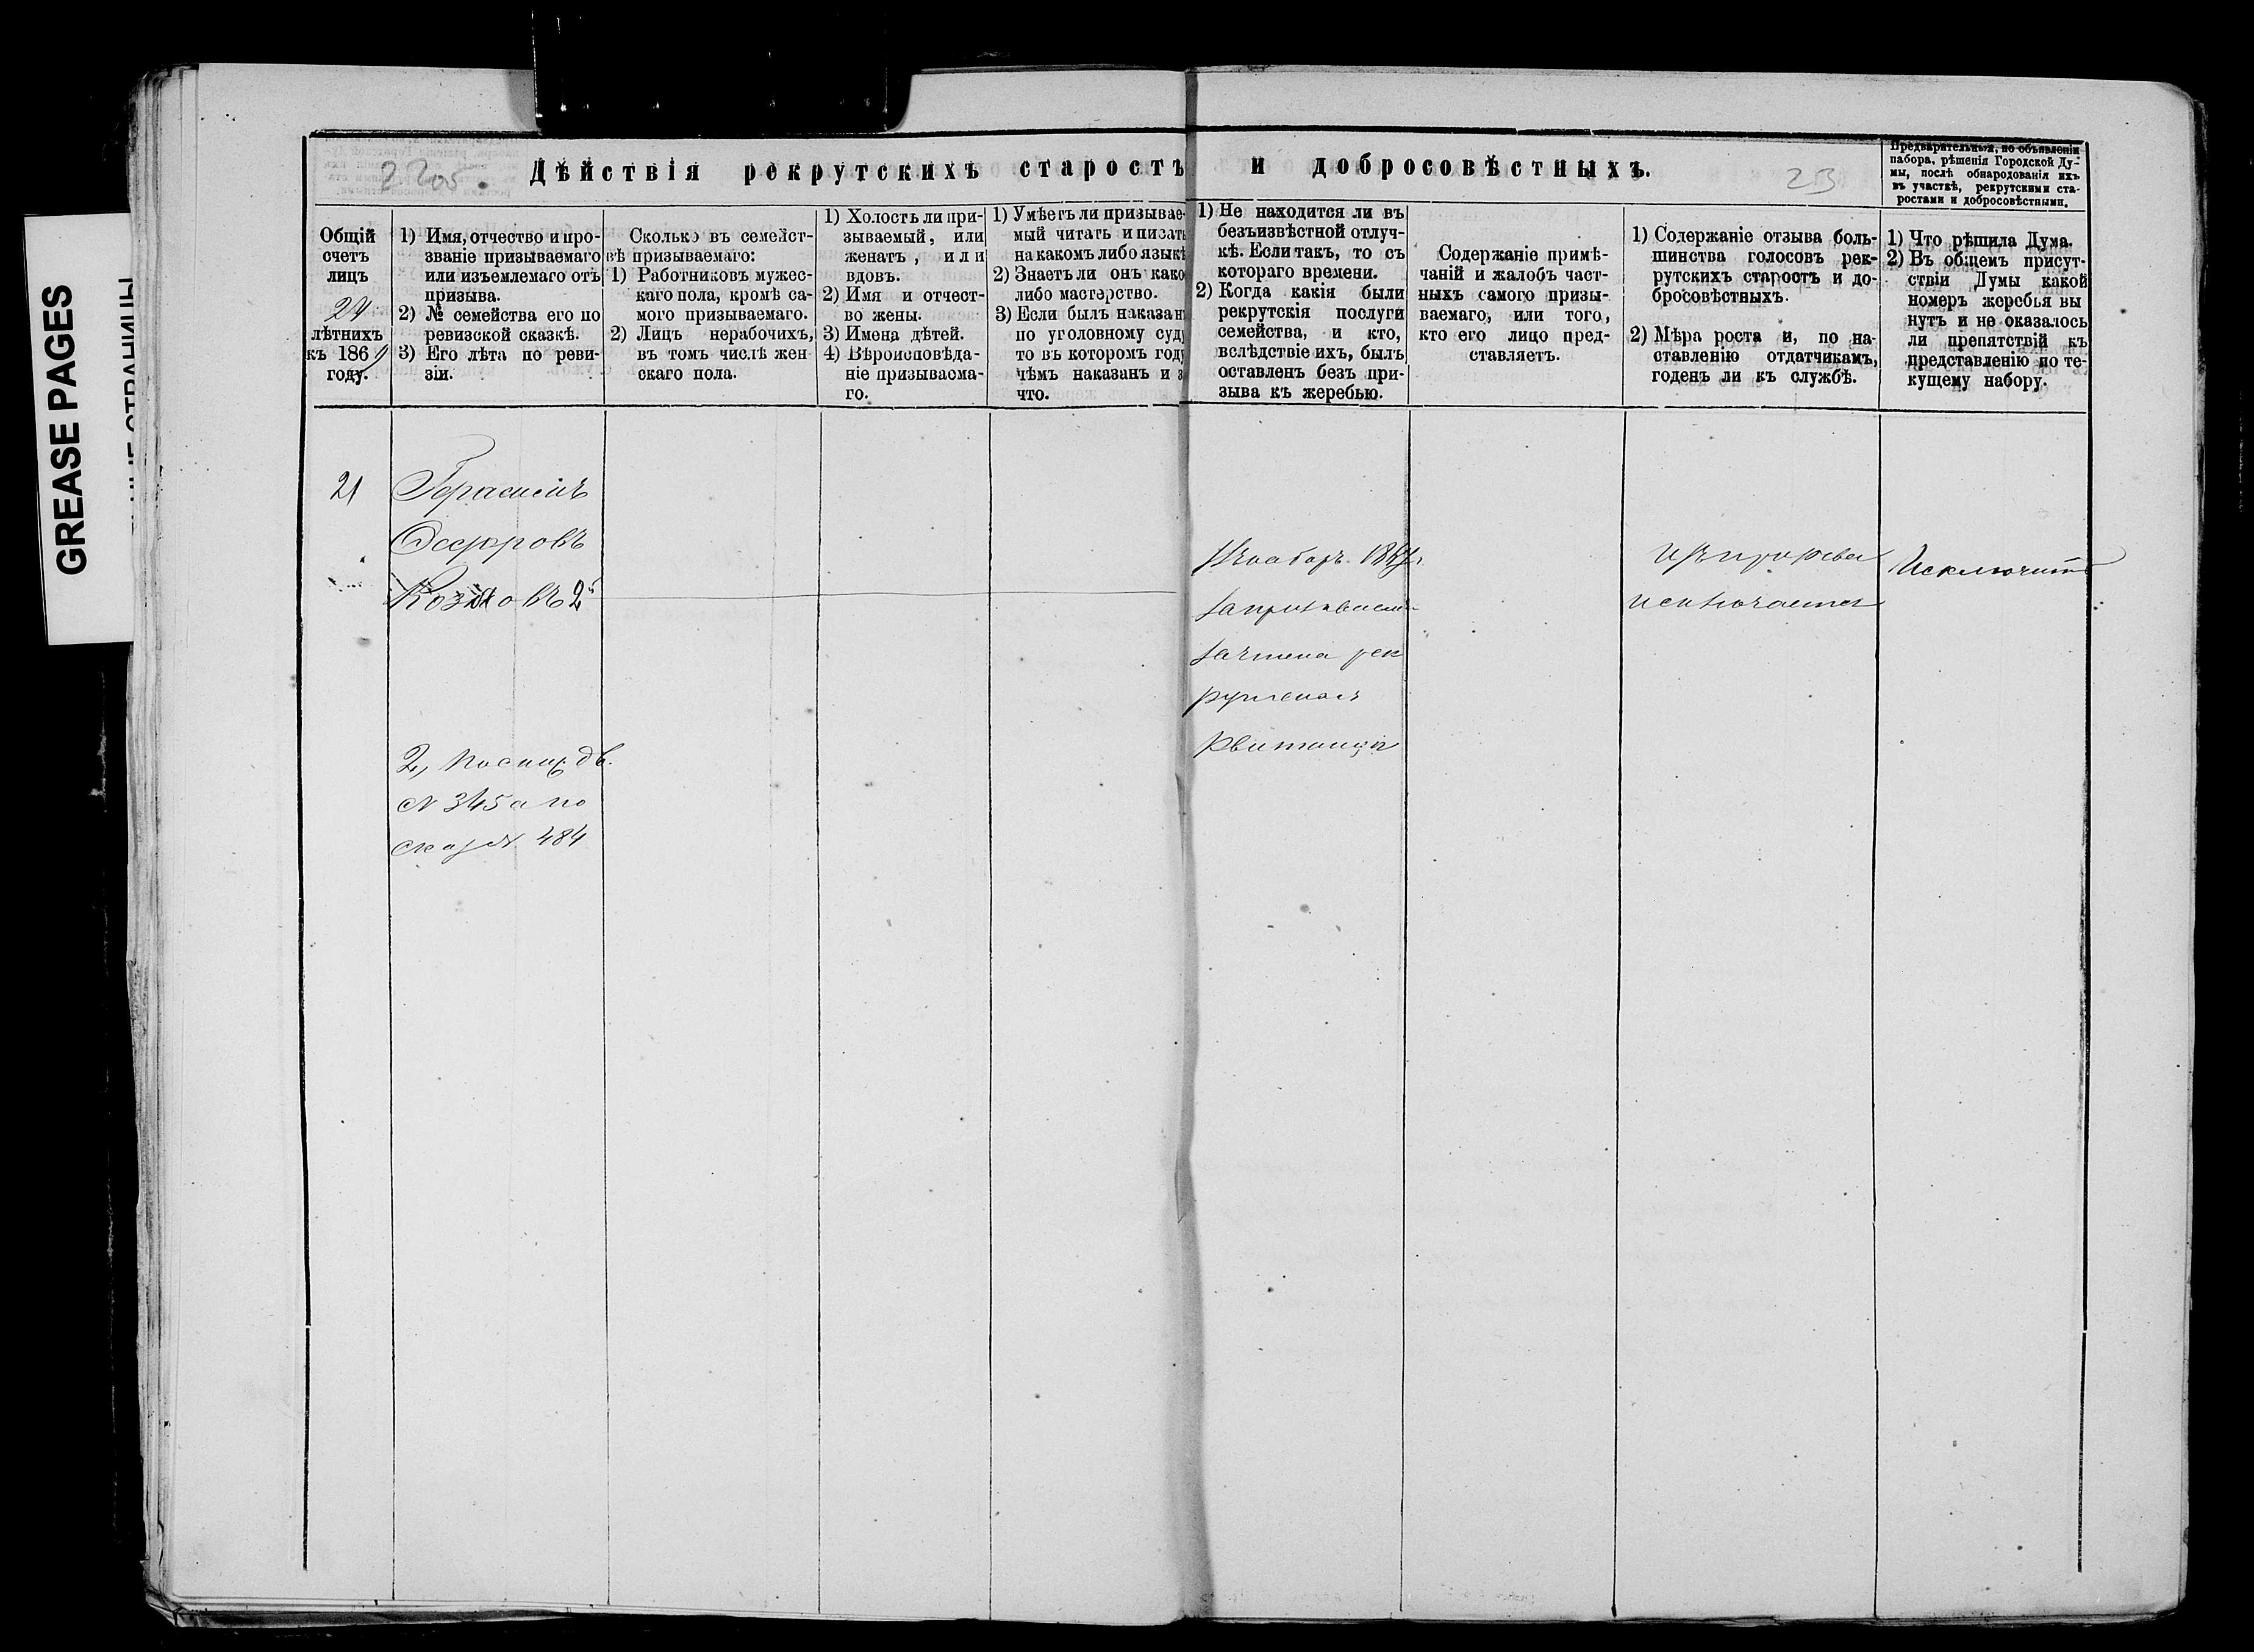 GREASE PAGES
22об.
Дѣйствія рекрутскихъ старостъ и добросовѣстныхъ.
23
Предварительныя, по объявленіи
набора, рѣшенія Городской Ду-
мы, послѣ обнародованія ихъ
въ участкѣ, рекрутскими ста-
ростами и добросовѣстными.
Общій
счетъ
лицъ
24
лѣтнихъ
къ 1869
году.
1) Имя, отчество и про-
званіе призываемаго
или изъемлемаго отъ
призыва.
2) № семейства его по
ревизской сказкѣ.
3) Его лѣта по реви-
зіи.
Сколько въ семейст-
вѣ призываемаго:
1) Работниковъ мужес-
каго пола, кромѣ са-
мого призываемаго.
2) Лицъ нерабочихъ,
въ томъ числѣ жен
скаго пола.
1) Холостъ ли при-
зываемый, или
женатъ, или
вдовъ.
2) Имя и отчест-
во жены.
3) Имена дѣтей.
4) Вѣроисповѣда-
ніе призываема-
го.
1) Умѣетъ ли призывае-
мый читать и писать
на какомъ либо языкѣ
2) Знаетъ ли онъ како
либо мастерство.
3) Если былъ наказан
по уголовному суду
то въ которомъ году
чѣмъ наказанъ и з
что.
1) Не находится ли въ
безъизвѣстной отлуч-
кѣ. Если такъ, то съ
котораго времени.
2) Когда какія были
рекрутскія послуги
семейства, и кто,
вслѣдствіе ихъ, былъ
оставленъ безъ при-
зыва къ жеребью.
Содержаніе примѣ-
чаній и жалобъ част-
ныхъ самого призы-
ваемаго, или того,
кто его лицо пред-
ставляетъ.
1) Содержаніе отзыва боль-
шинства голосовъ рек-
рутскихъ старостъ и до-
бросовѣстныхъ.
2) Мѣра роста и, по на-
ставленію отдатчикамъ,
годенъ ли къ службѣ.
1) Что рѣшила Дума.
2) Въ общемъ присут-
ствіи Думы какой
номеръ жеребья вы
нутъ и не оказалось
ли препятствій къ
представленію по те-
кущему набору.
21
Герасимъ
Козловъ 2й
2,
№ 345 а по
сказк 484
зачтена рек
рутская
квитанція
исключается
Исключить